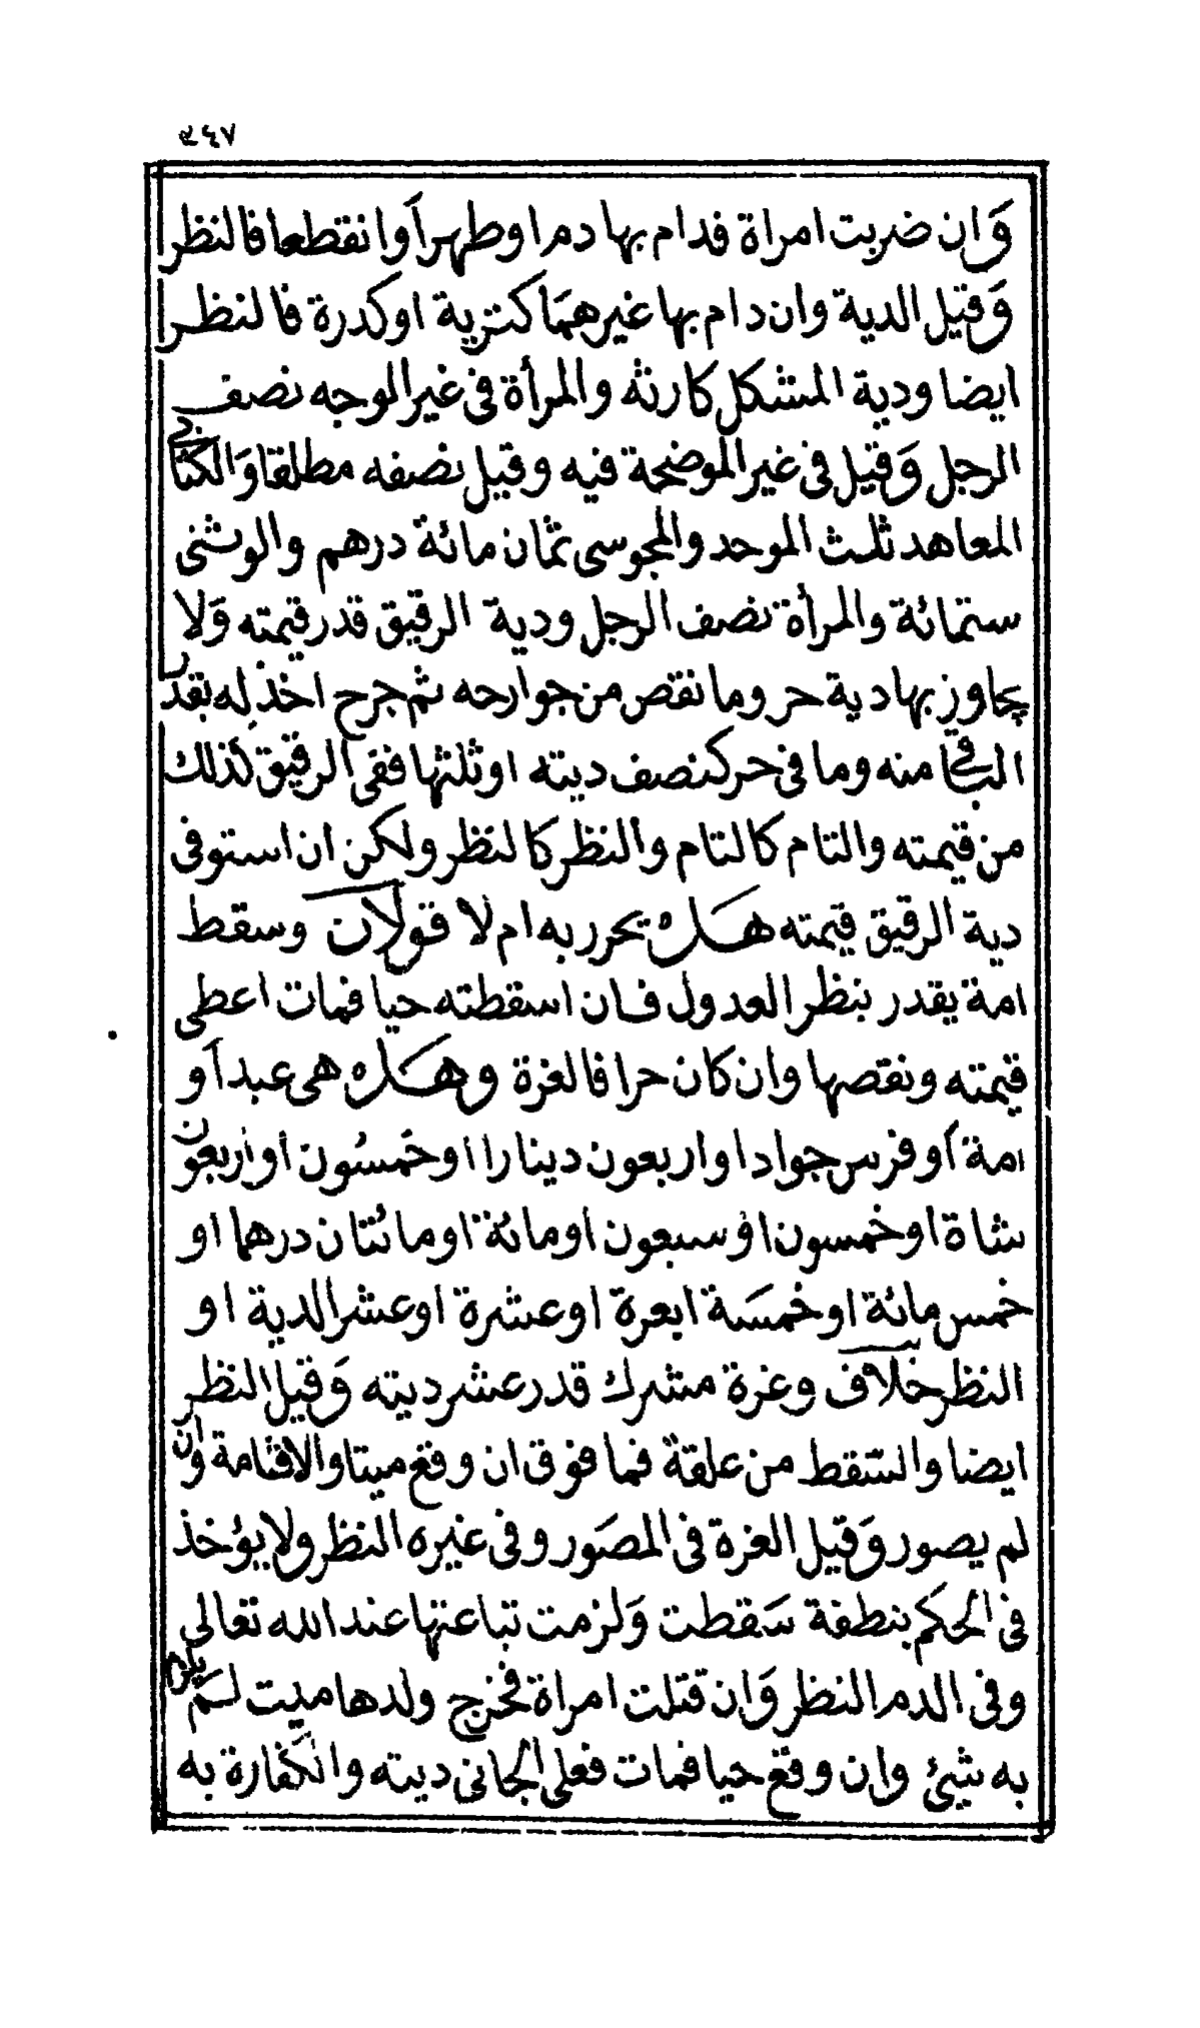 ٩٤٧
وَان ضربت امراة فدام بها دم اوطهراَوانقطعا فالنظر
وَقيل الدية وان دام بها غيرهمَا كتزية اوكدرة فالنظر
ايضا ودية المشكل كارثه والمرأة فى غير الوجه نصف
الرجل وَقيل فى غير الموضحة فيه وقيل نصفه مطلقا وَالكتابي
المعاهد ثلث الموحد والمجوسى ثمان مائة درهم والوثنى
ستمائة والمرأة نصف الرجل ودية الرقيق قدر قيمته وَلا
يجاوز بها دية حر وما نقص من جوارحه ثم جرح اخذ له بقدر
الباقى منه وما فى حر كنصف ديته اوثلثها ففى الرقيق كذلك
من قيمته والتام كالتام والنظر كالنظر ولكن ان استوفى
دية الرقيق قيمته هَل يحرر به ام لا قولان وسقط
امة يقدر بنظر العدول فان اسقطته حيا فمات اعطى
قيمته ونقصها وان كان حرا فالغرة وهَل هى عبد اَو
امة اَو فرس جواد او اربعون دينارا اوخمسُون اَو اربعون
شاة اَوخمسون اوْسبعون اَومائة اومائتان درهما او
خمس مائة اوخمسَة ابعرة اوعشرة اوعشر الدية او
النظر خلاف وغرة مشرك قدر عشر ديته وَقيل النظر
ايضا والسّقط من علقة فما فوق ان وقع ميتا والا فتامة وان
لم يصور وَقيل الغرة فى المصَور وفى غيره النظر ولا يؤخذ
فى الحكم بنطفة سَقطت وَلزمت تباعتها عند الله تعالى
وفى الدم النظر وَان قتلت امراة فخرج ولدها ميت لَم يلزم
به شئ وان وقع حيا فمات فعلى الجانى ديته والكفارة به